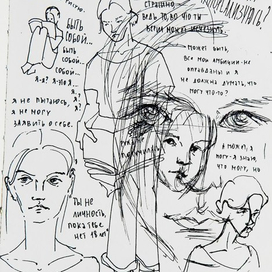 БЫТЬ
СОБОЙ...
БЫТЬ
СОБОЙ...
СОБОЙ...
Я-Я? Я-НО Я...
Я.
Я.
Я?
Я НЕ ПЫТАЮСЬ,
Я НЕ МОГУ
ЗАЯВИТЬ О СЕБЕ.
ТЫ НЕ
ЛИЧНОСТЬ,
ПОКА ТЕБЕ
НЕТ 18 ЛЕТ
СТРАШНО,
ВЕДЬ ТО, ВО ЧТО ТЫ
ВЕРИШ МОЖЕТ ИСЧЕЗНУТЬ
МОЖЕТ БЫТЬ,
ВСЕ МОИ АМБИЦИИ НЕ
ОПРАВДАНЫ И Я
НЕ ДОЛЖНА ДУМАТЬ, ЧТО
МОГУ ЧТО-ТО?
Я МОГУ, Я
МОГУ-Я ЗНАЮ,
ЧТО МОГУ, НО